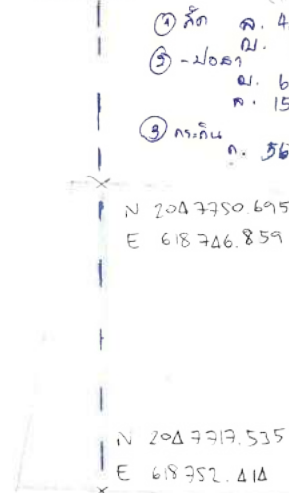 ① สัก ล. 4
ญ.
② - ปอสา
ญ. 6
ล. 15
③ กระถิน
ล. 56
N 2047750.695
E 618746.859
N 2047717.535
E 618752.414